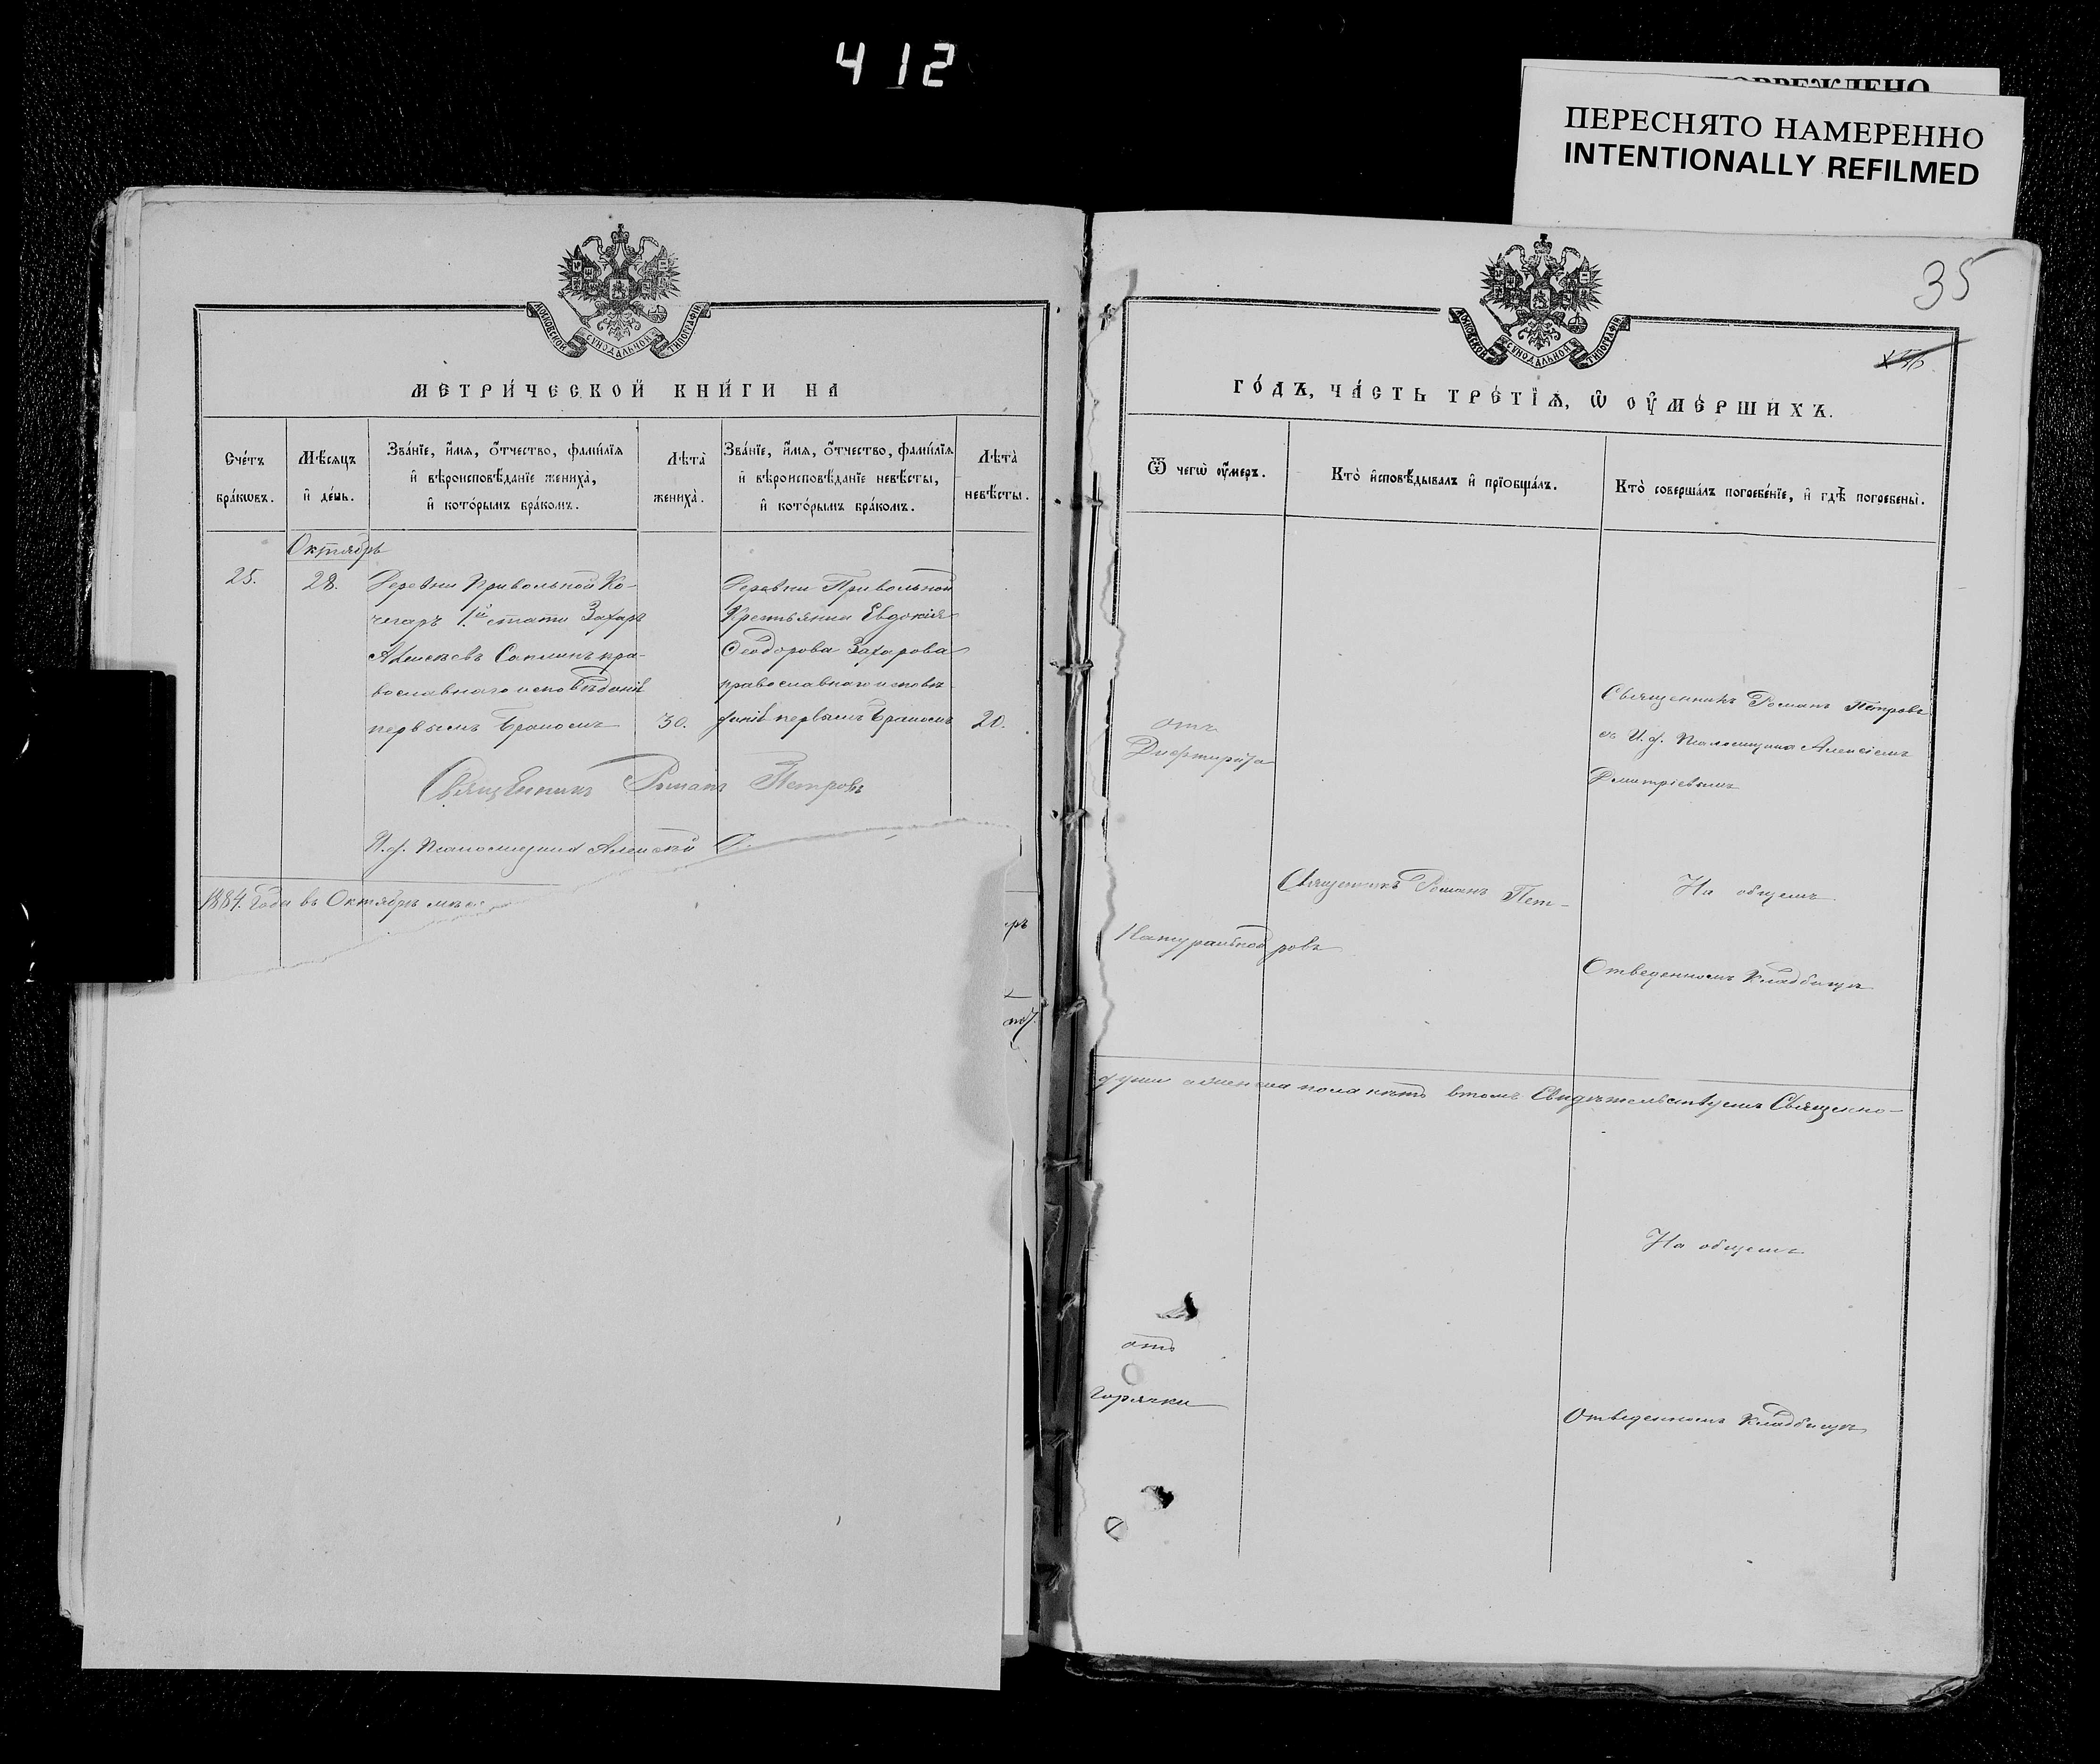 412
ПОВРЕЖДЕНО
ПЕРЕСНЯТО НАМЕРЕННО
INTENTIONALLY REFILMED
МОСКОВСКОЙ СѴНОДАЛЬНОЙ ТИПОГРАФІИ
МЕТРИ́ЧЕСКОЙ КНИ́ГИ НА
Сче́тъ бра́кѡвъ.
Мѣ́сяцъ и҆ де́нь.
Зва́нїе, и҆́мѧ, ѻ҆́тчество, фами́лїѧ
и҆ вѣроисповѣ́данїе жениха̀,
и҆ кото́рымъ бра́комъ.
Лѣта̀ жениха̀.
Зва́нїе, и҆́мѧ, ѻ҆́тчество, фами́лїѧ
и҆ вѣроисповѣ́данїе невѣ́сты,
и҆ кото́рымъ бра́комъ.
Лѣта̀ невѣ́сты.
Октябрь
25.
28.
Деревни Привольной Ко-
чегаръ 1й стати Захаръ
Алексѣевъ пра-
вославнаго исповѣданiѣ
первымъ бракомъ
30.
Деревни Привольной
Крестьянки Евдокiя
Ѳеодорова Захарова
православнаго исповѣ-
данiѣ первымъ бракомъ
20.
Священникъ Романъ Петровъ
И.д. Псаломщика Алексѣй Д.
1884. Года въ Октябрѣ мѣс
МОСКОВСКОЙ СѴНОДАЛЬНОЙ ТИПОГРАФІИ
35
ГО́ДЪ, ЧА́СТЬ ТРЕ́ТЇѦ, Ѡ҆ ОУ҆МЕ́РШИХЪ.
Ѿ чегѡ̀ ᲂу҆́меръ.
Кто̀ и҆сповѣ́дывалъ и҆ прїобща́лъ.
Кто̀ соверша́лъ погребе́нїе, и҆ гдѣ̀ погребены̀.
отъ
Дифтирiта
Священникъ Романъ Петровъ
съ И.д. Псаломщика Алексiемъ
Дмитрiевымъ
Священникъ Романъ Пет-
ровъ
На общемъ
Натуральной
Отведенномъ Кладбищѣ
души женска пола нѣтъ втомъ Свидѣтельствуемъ Священно-
На общемъ
отъ
горячки
Отведенномъ Кладбищѣ